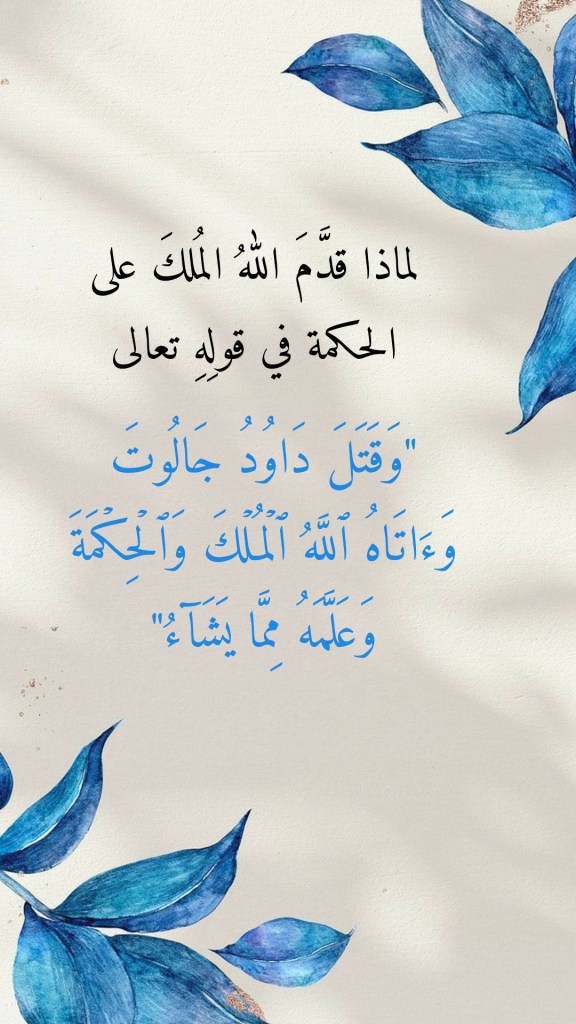 لماذا قدَّمَ اللهُ المُلكَ على
الحكمة في قولِهِ تعالى
"وَقَتَلَ دَاوُدُ جَالُوتَ
وَءَاتَاهُ ٱللَّهُ ٱلۡمُلۡكَ وَٱلۡحِكۡمَةَ
وَعَلَّمَهُ مِمَّا يَشَآءُ"